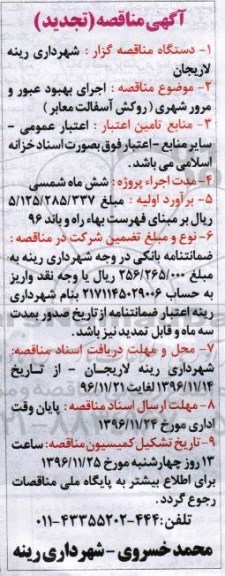 آگهی مناقصه (تجدید)
۱- دستگاه مناقصه گزار : شهرداری رینه
لاریجان
۲- موضوع مناقصه : اجرای بهبود عبور و
مرور شهری ( روکش آسفالت معابر )
۳- منابع تامین اعتبار : اعتبار عمومی -
سایر منابع - اعتبار فوق بصورت اسناد خزانه
اسلامی می باشد.
۴- مدت اجراء پروژه : شش ماه شمسی
۵- برآورد اولیه : مبلغ ۵/۱۲۵/۲۸۵/۳۳۷
ریال بر مبنای فهرست بهاء راه و باند ۹۶
۶- نوع و مبلغ تضمین شرکت در مناقصه :
ضمانتنامه بانکی در وجه شهرداری رینه به
مبلغ ۲۵۶/۲۶۵/۰۰۰ ریال یا وجه نقد واریز
به حساب ۲۱۷۱۱۴۵۰۲۹۰۰۶ بنام شهرداری
رینه اعتبار ضمانتنامه از تاریخ صدور بمدت
سه ماه و قابل تمدید نیز باشد.
۷- محل و مهلت دریافت اسناد مناقصه:
شهرداری رینه لاریجان - از تاریخ
۱۳۹۶/۱۱/۱۴ لغایت ۹۶/۱۱/۲۱
۸- مهلت ارسال اسناد مناقصه : پایان وقت
اداری مورخ ۱۳۹۶/۱۱/۲۴
۹- تاریخ تشکیل کمیسیون مناقصه: ساعت
۱۳ روز چهارشنبه مورخ ۱۳۹۶/۱۱/۲۵
برای اطلاع بیشتر به پایگاه ملی مناقصات
رجوع گردد.
تلفن: ۴۴۴-۴۳۳۵۵۲۰۲-۰۱۱
محمد خسروی - شهرداری رینه